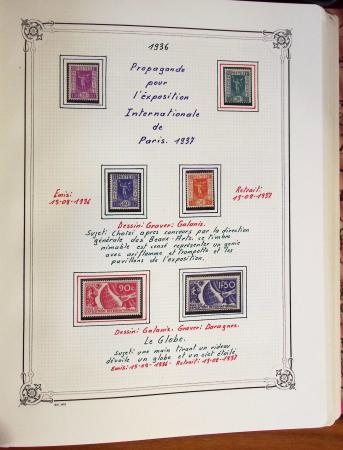 1936
Propagande
pour
l'éxposition
Internationale
de
Paris. 1937
Emis:
15-09-1936
Retrait:
13-08-1937
Dessini: Graver: Galanis.
Sujet: Choisi apres concours par la direction
générale des Beaux-Arts, ce timbre
minable est censé représenter un génie
avec oriflamme et trompette et les
pavillons de l'exposition.
90c
1F50
Dessini: Galanis. Graver: Daragnes.
Le Globe.
Sujet: une main tirant un rideau
dévoile un globe et un ciel étoilé.
Emis: 15-09-1936 Retrait: 13-08-1937